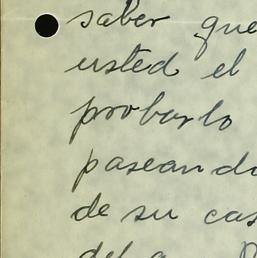 saber que
usted el
probarlo
paseando
de su cas
del a